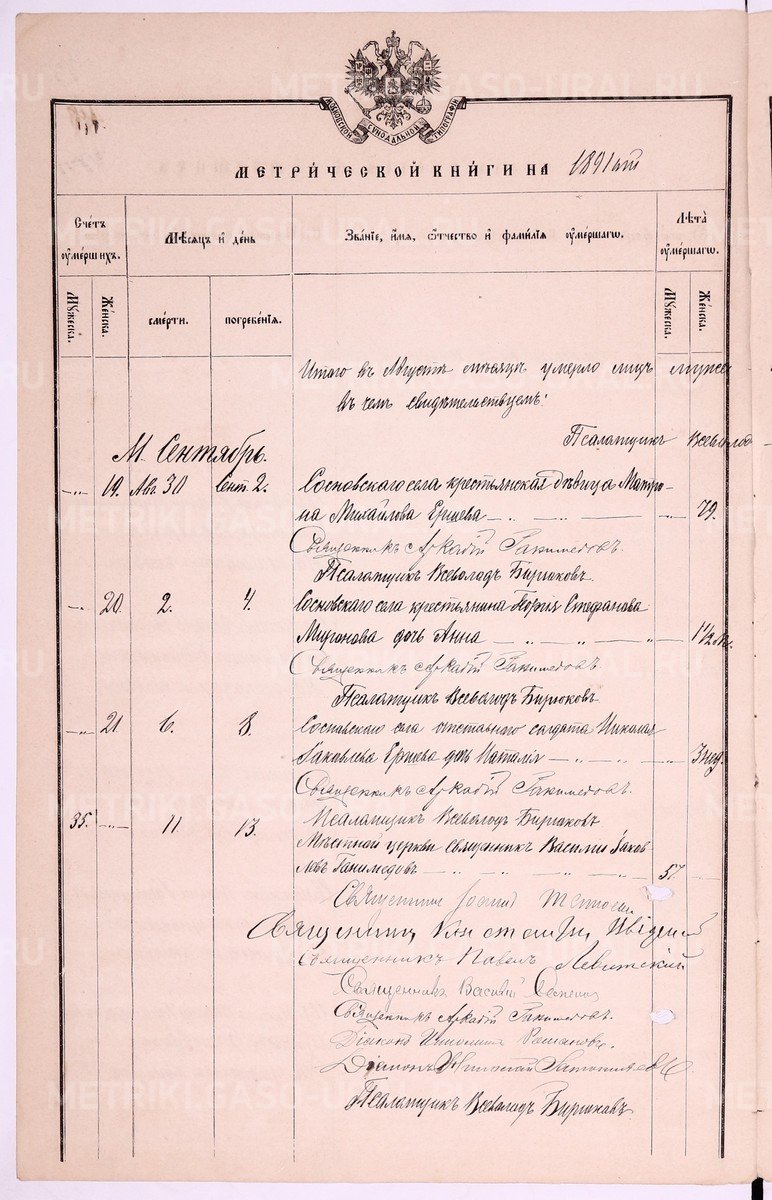 METRIKI.GASO-URAL.RU
МОСКОВСКОЙ СИНОДАЛЬНОЙ ТИПОГРАФІИ
МЕТРИ́ЧЕСКОЙ КНИ́ГИ НА 1891 годъ
Сче́тъ оуме́ршихъ.
Мѣ́сяцъ и де́нь
Зва́нїе, и́мя, ѻ҆́тчество и фами́лїя оуме́ршагѡ.
Лѣта̀ оуме́ршагѡ.
Мꙋ́жеска.
Же́нска.
сме́рти.
погребе́нїя.
Мꙋ́жеска.
Же́нска.
Итого въ Августѣ мѣсяцѣ умерло лицъ мужес
въ чемъ свидѣтельствуемъ:
Псаломщикъ Всеволод
М. Сентябрь.
19. Авг 30 Сент. 2. Сосновскаго села крестьянская дѣвица Матро-
на Михайлова Ершева 79.
Священникъ Аркадій Ганимедовъ.
Псаломщикъ Всеволодъ Бирюковъ.
20. 2. 4. Сосновскаго села крестьянина Георгія Стефанова
Миронова дочь Анна 1½
Священникъ Аркадій Ганимедовъ.
Псаломщикъ Всеволодъ Бирюковъ
21 6. 8. Сосновскаго села отставного солдата Николая
Іаковлева Ершева дочь Наталія 3 нед.
Священникъ Аркадій Ганимедовъ.
Псаломщикъ Всеволодъ Бирюковъ
35. 11. 13. Мѣстной церкви священникъ Василій Іаков
левъ Ганимедовъ 57.
Священникъ
Священникъ
Священникъ Павелъ Левитскій
Священникъ Василій
Священникъ Аркадій Ганимедовъ.
Діаконъ
Діаконъ
Псаломщикъ Всеволодъ Бирюковъ